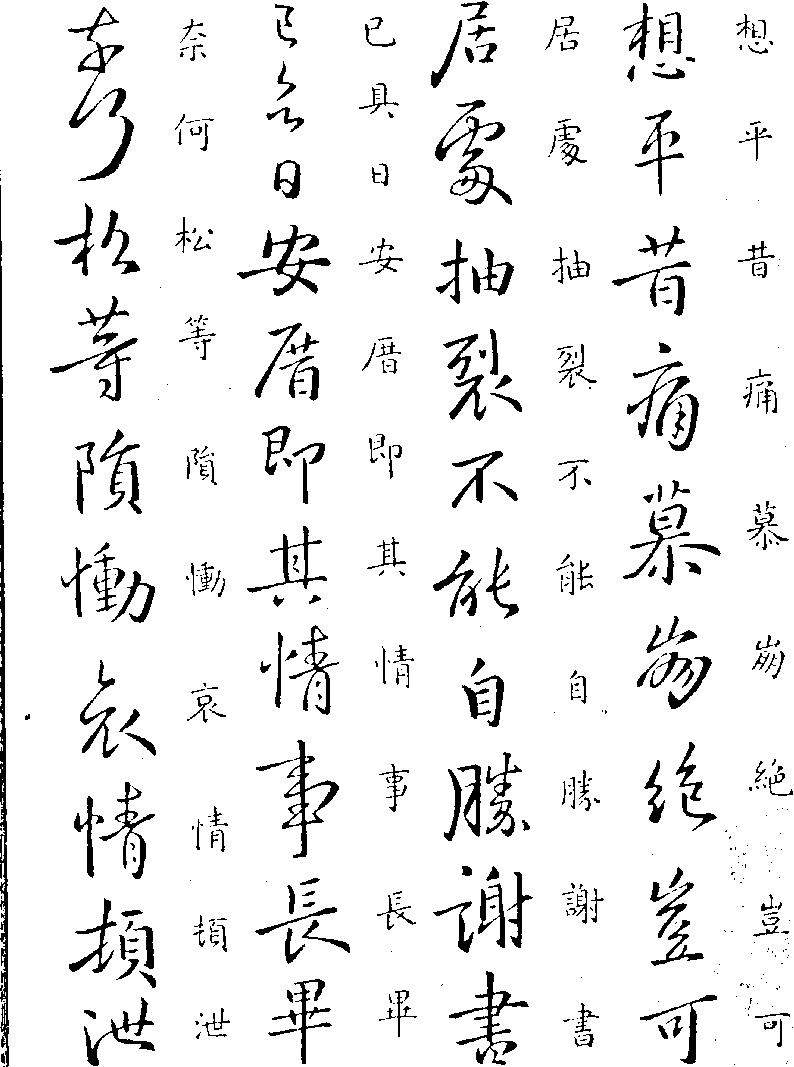 想平昔痛慕崩絶豈可
想平昔痛慕崩絶豈可
居處抽裂不能自勝謝書
居處抽裂不能自勝謝書
已具日安厝即其情事長畢
已具日安厝即其情事長畢
奈何松等隕慟哀情頓泄
奈何松等隕慟哀情頓泄